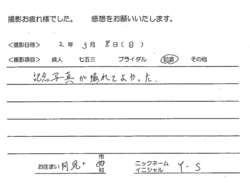 撮影お疲れ様でした。 感想をお願いいたします。
<撮影日時> 2年 3月 8日(日)
<撮影項目> 成人 七五三 ブライダル 記念 その他
記念写真が撮れてよかった。
お住まい 阿見 市 町 村 ニックネーム イニシャル Y-S